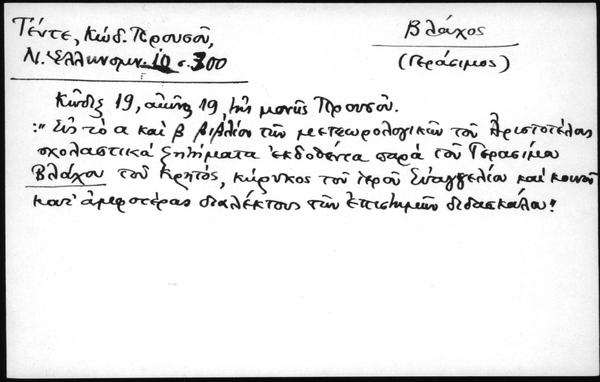 Τέντε, Κώδ. Προυσοῦ,
Ν. Ἑλληνομν. 10 σ. 300
Βλάχος
(Γεράσιμος)
Κῶδιξ 19, αἰῶνος 19, τῆς μονῆς Προυσοῦ.
:"Εἰς τὸ α καὶ β βιβλίον τῶν μετεωρολογικῶν τοῦ Ἀριστοτέλους
σχολαστικὰ ζητήματα ἐκδοθέντα παρὰ τοῦ Γερασίμου
Βλάχου τοῦ Κρητός, κήρυκος τοῦ ἱεροῦ Εὐαγγελίου καὶ κοινοῦ
κατ' ἀμφοτέρας διαλέκτους τῶν ἐπιστημῶν διδασκάλου"